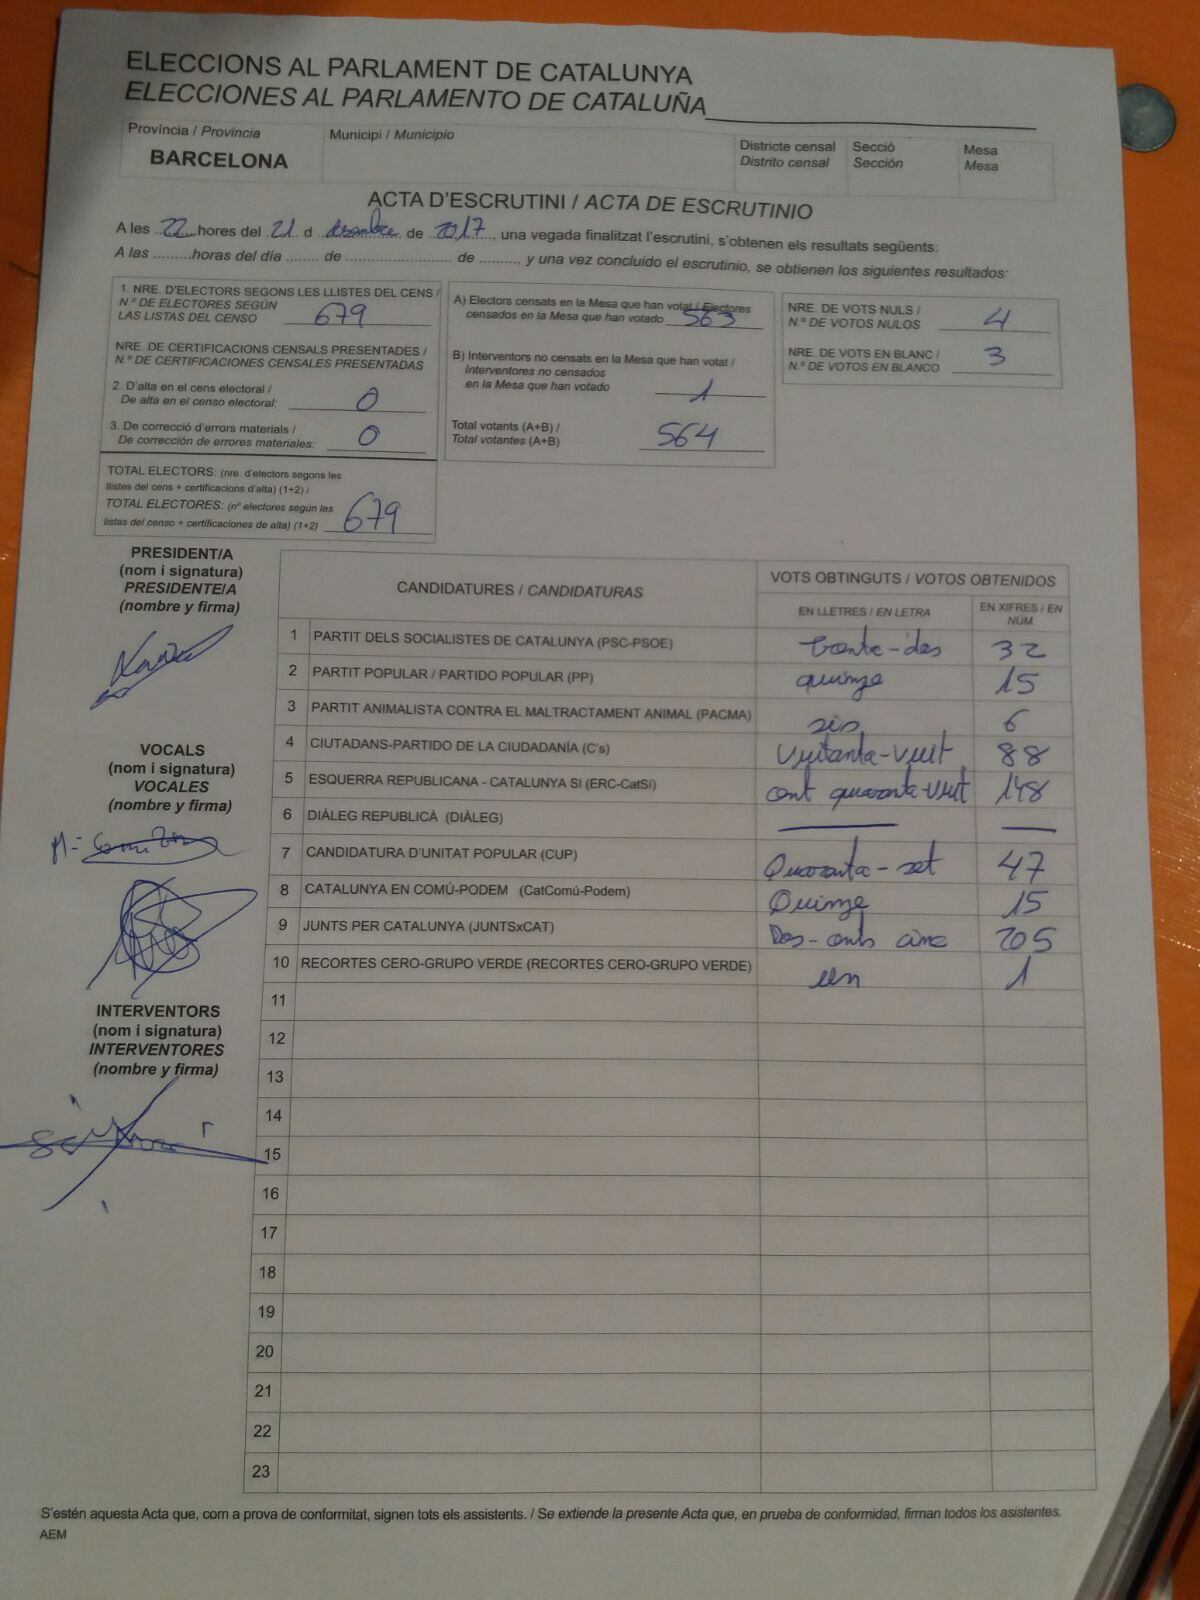 ELECCIONS AL PARLAMENT DE CATALUNYA
ELECCIONES AL PARLAMENTO DE CATALUÑA
Província / Provincia
BARCELONA
Municipi / Municipio
Districte censal
Distrito censal
Secció
Sección
Mesa
Mesa
ACTA D'ESCRUTINI / ACTA DE ESCRUTINIO
A les 22 hores del 21 d desembre de 2017, una vegada finalitzat l'escrutini, s'obtenen els resultats següents:
A las .........horas del día ....... de ...................... de ........, y una vez concluido el escrutinio, se obtienen los siguientes resultados:
1. NRE. D'ELECTORS SEGONS LES LLISTES DEL CENS /
N.º DE ELECTORES SEGÚN
LAS LISTAS DEL CENSO 679
NRE. DE CERTIFICACIONS CENSALS PRESENTADES /
N.º DE CERTIFICACIONES CENSALES PRESENTADAS
2. D'alta en el cens electoral /
De alta en el censo electoral: 0
3. De correcció d'errors materials /
De corrección de errores materiales: 0
TOTAL ELECTORS: (nre. d'electors segons les
llistes del cens + certificacions d'alta) (1+2) /
TOTAL ELECTORES: (nº electores según las
listas del censo + certificaciones de alta) (1+2) 679
A) Electors censats en la Mesa que han votat / Electores
censados en la Mesa que han votado 563
B) Interventors no censats en la Mesa que han votat /
Interventores no censados
en la Mesa que han votado 1
Total votants (A+B) /
Total votantes (A+B) 564
NRE. DE VOTS NULS /
N.º DE VOTOS NULOS 4
NRE. DE VOTS EN BLANC /
N.º DE VOTOS EN BLANCO 3
PRESIDENT/A
(nom i signatura)
PRESIDENTE/A
(nombre y firma)
VOCALS
(nom i signatura)
VOCALES
(nombre y firma)
INTERVENTORS
(nom i signatura)
INTERVENTORES
(nombre y firma)
CANDIDATURES / CANDIDATURAS
VOTS OBTINGUTS / VOTOS OBTENIDOS
EN LLETRES / EN LETRA
EN XIFRES / EN NÚM.
1 PARTIT DELS SOCIALISTES DE CATALUNYA (PSC-PSOE) trenta-dos 32
2 PARTIT POPULAR / PARTIDO POPULAR (PP) quinze 15
3 PARTIT ANIMALISTA CONTRA EL MALTRACTAMENT ANIMAL (PACMA) sis 6
4 CIUTADANS-PARTIDO DE LA CIUDADANÍA (C's) Vuitanta-vuit 88
5 ESQUERRA REPUBLICANA - CATALUNYA SI (ERC-CatSí) cent quaranta-vuit 148
6 DIÀLEG REPUBLICÀ (DIÀLEG) — —
7 CANDIDATURA D'UNITAT POPULAR (CUP) Quaranta-set 47
8 CATALUNYA EN COMÚ-PODEM (CatComú-Podem) Quinze 15
9 JUNTS PER CATALUNYA (JUNTSxCAT) Dos-cents cinc 205
10 RECORTES CERO-GRUPO VERDE (RECORTES CERO-GRUPO VERDE) un 1
11
12
13
14
15
16
17
18
19
20
21
22
23
S'estén aquesta Acta que, com a prova de conformitat, signen tots els assistents. / Se extiende la presente Acta que, en prueba de conformidad, firman todos los asistentes.
AEM